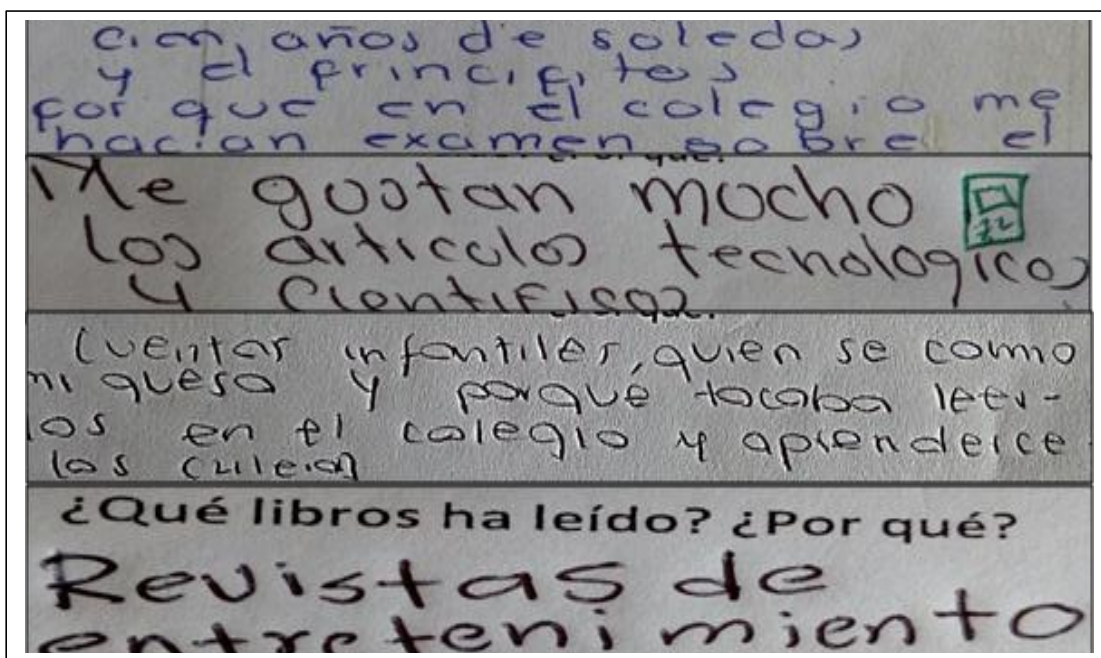 cien años de soledad
y el principitos
por que en el colegio me
hacian examen sobre el
Me gustan mucho
los articulos tecnologicos
y Cientificos
Cuentos infantiles, quien se comio
mi queso y porqué tocaba leer-
los en el colegio y aprenderce
los
¿Qué libros ha leído? ¿Por qué?
Revistas de
entretenimiento